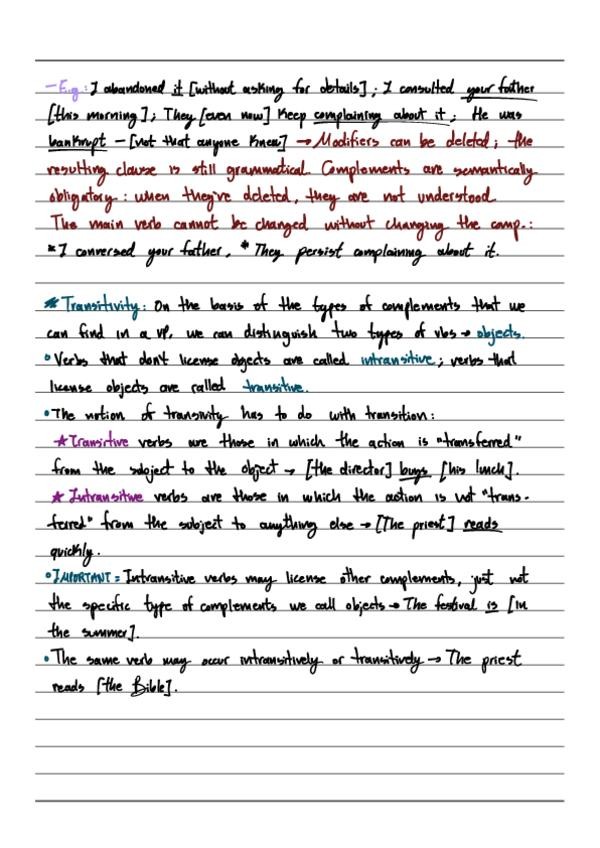 - E.g.: I abandoned it [without asking for details]; I consulted your father
[this morning]; They [even now] keep complaining about it; He was
bankrupt - [not that anyone knew] → Modifiers can be deleted; the
resulting clause is still grammatical. Complements are semantically
obligatory: when they're deleted, they are not understood.
The main verb cannot be changed without changing the comp.:
* I conversed your father, * They persist complaining about it.
* Transitivity: On the basis of the types of complements that we
can find in a VP, we can distinguish two types of vbs → objects.
• Verbs that don't license objects are called intransitive; verbs that
license objects are called transitive.
• The notion of transivity has to do with transition:
★ Transitive verbs are those in which the action is "transferred"
from the subject to the object → [the director] buys [his lunch].
★ Intransitive verbs are those in which the action is not "trans-
ferred" from the subject to anything else → [The priest] reads
quickly.
• IMPORTANT = Intransitive verbs may license other complements, just not
the specific type of complements we call objects → The festival is [in
the summer].
• The same verb may occur intransitively or transitively → The priest
reads [the Bible].